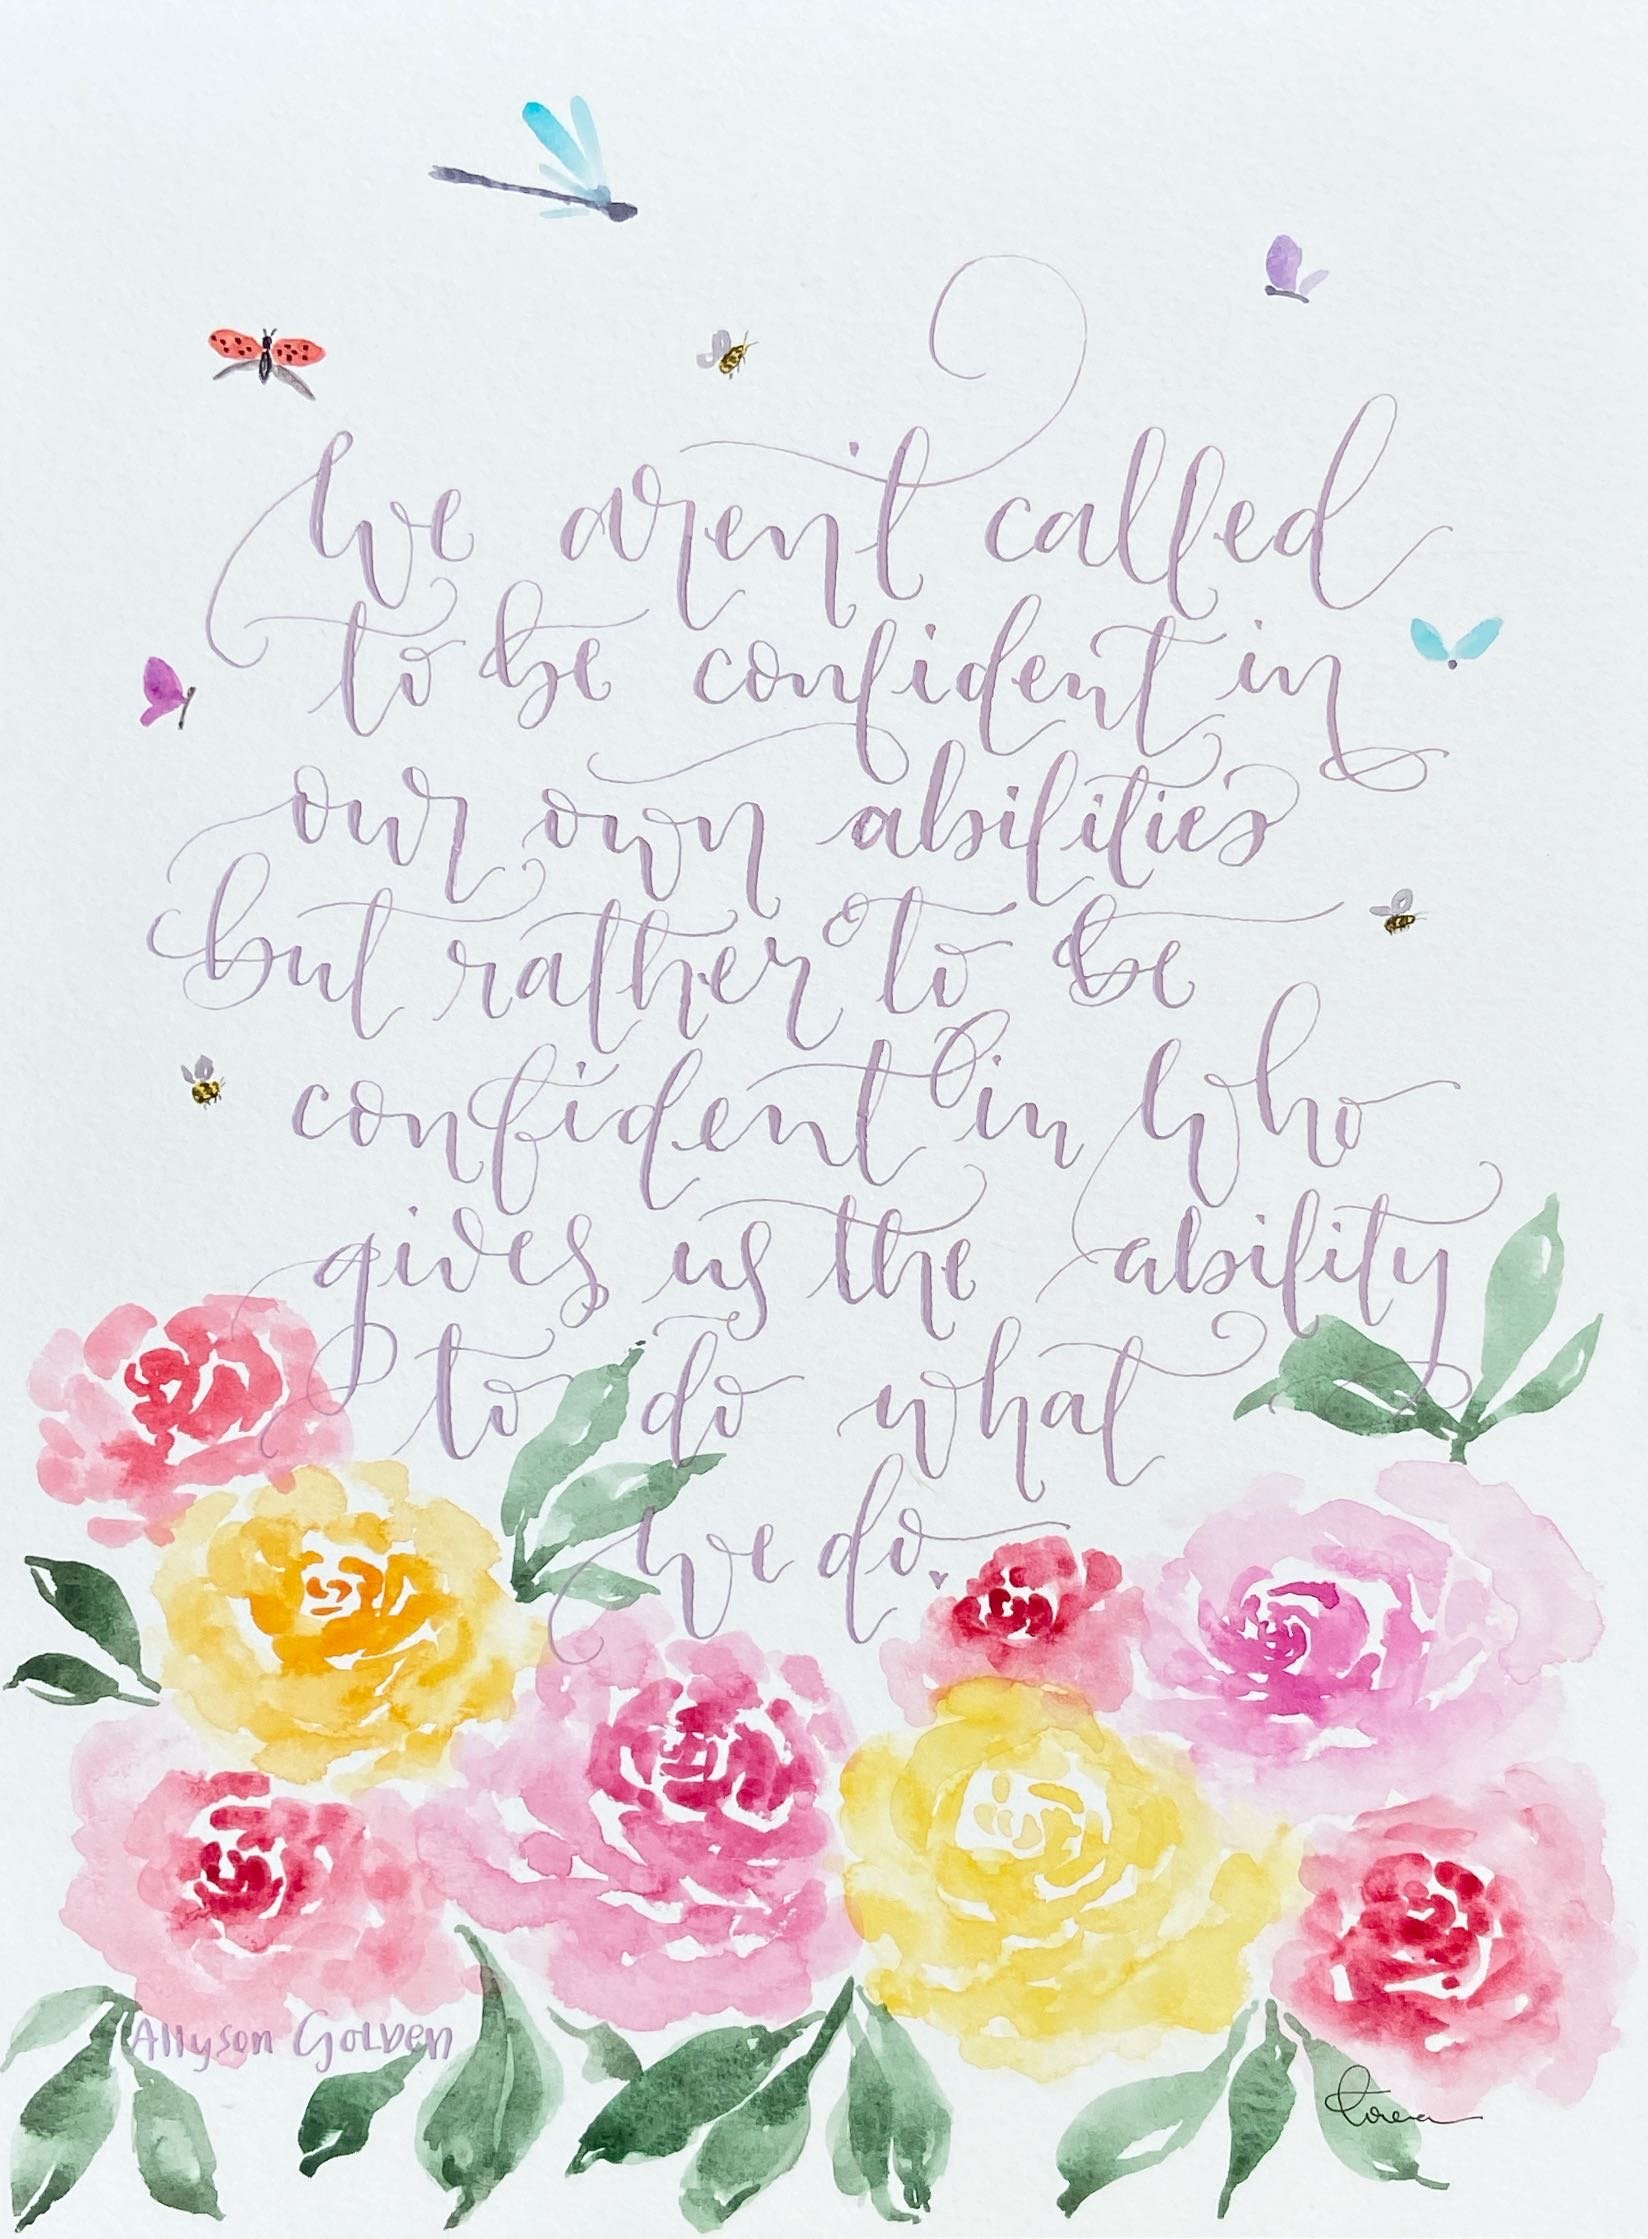 We aren't called
to be confident in
our own abilities
but rather to be
confident in who
gives us the ability
to do what
we do.
Allyson Golden